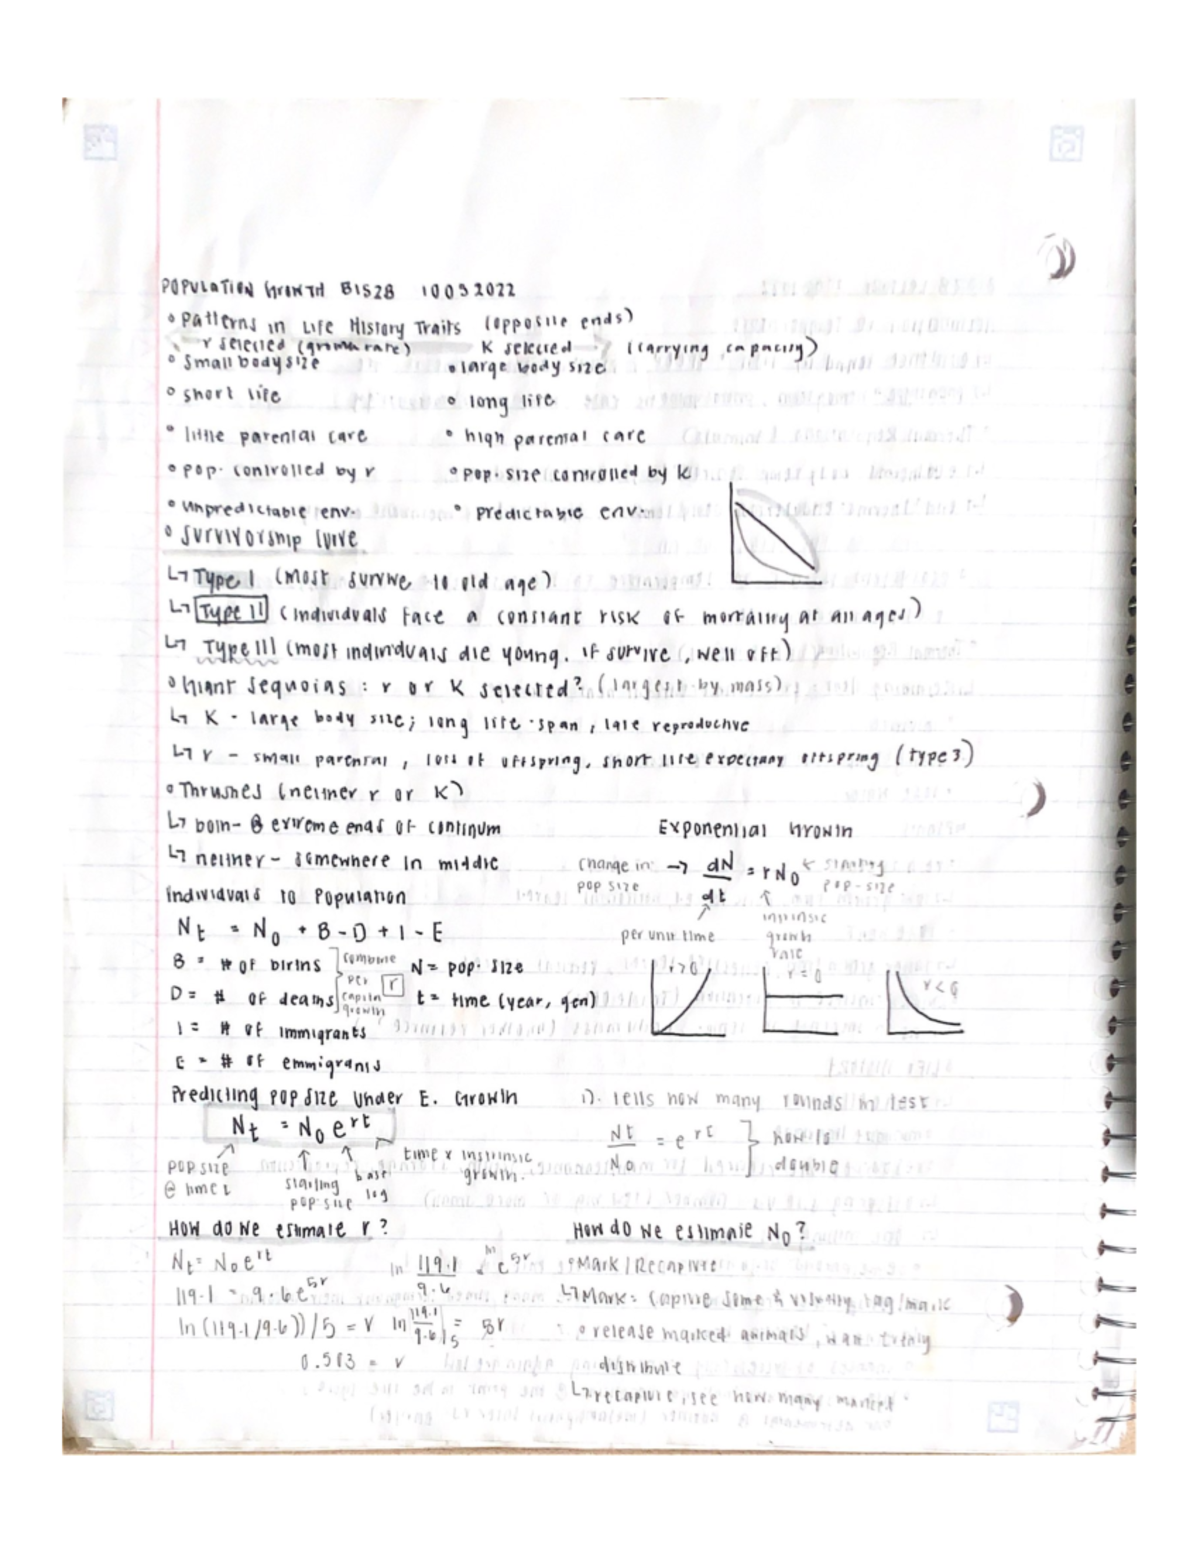 POPULATION GROWTH BIS2B 10052022
• Patterns in Life History Traits (opposite ends)
r selected (growth rate) K selected → (carrying capacity)
• small body size • large body size
• short life • long life
• little parental care • high parental care
• pop. controlled by r • pop. size controlled by K
• unpredictable env. • predictable env.
• survivorship curve
↳ Type I (most survive to old age)
↳ Type II (individuals face a constant risk of mortality at all ages)
↳ Type III (most individuals die young. if survive, well off)
• Giant sequoias: r or K selected? (largest by mass)
↳ K - large body size; long life-span, late reproductive
↳ r - small parental, lots of offspring, short life expectany offspring (type 3)
• Thrushes (neither r or K)
↳ both - @ extreme ends of continum
↳ neither - somewhere in middle
Individuals to Population
Nt = N0 + B - D + I - E
B = # of births
D = # of deaths
combine per capita growth r
N = pop. size
t = time (year, gen)
I = # of immigrants
E = # of emmigrants
Exponential Growth
change in pop size → dN/dt = rN0 ← starting pop-size
per unit time
intrinsic growth rate
r>0 r=0 r<0
Predicting pop size under E. Growth
Nt = N0 e^rt
pop size @ time t
starting pop. size
base log
time x intrinsic growth.
tells how many rounds in test
Nt/N0 = e^rt } how to double
How do we estimate r?
Nt = N0 e^rt
119.1 = 9.6 e^5r
ln(119.1/9.6))/5 = r
0.503 = r
ln 119.1/9.6 = ln e^5r
ln 119.1/9.6 /5 = 5r
How do we estimate N0?
• Mark/Recapture
↳ Mark: capture some & visibly tag/mark
• release marked animals, want evenly distribute
↳ recapture, see how many marked